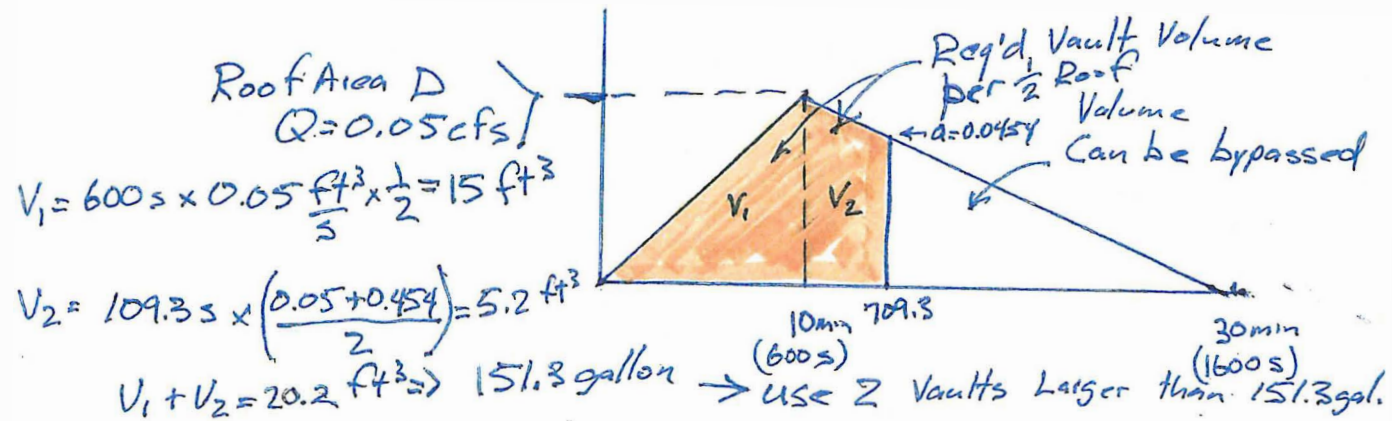 Roof Area D
Q=0.05cfs
V₁= 600s × 0.05 ft³/s × 1/2 = 15 ft³
V₂= 109.3s × (0.05+0.454/2) = 5.2 ft³
V₁ + V₂ = 20.2 ft³ => 151.3 gallon → use 2 Vaults Larger than 151.3gal.
Req'd Vault Volume
per 1/2 Roof
Volume
Can be bypassed
←Q=0.0454
V₁
V₂
10min
(600s)
709.3
30min
(1600s)